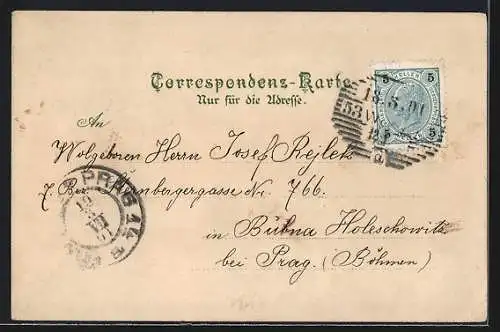 Correspondenz-Karte
Nur für die Adresse.
5 5
18.5.01
53 W
An
Wolgeboren Herrn Josef Rejlek
Sternbergergasse Nr. 766.
in Bubna Holeschowitz
bei Prag. (Böhmen)
PRAG 14
19
VII